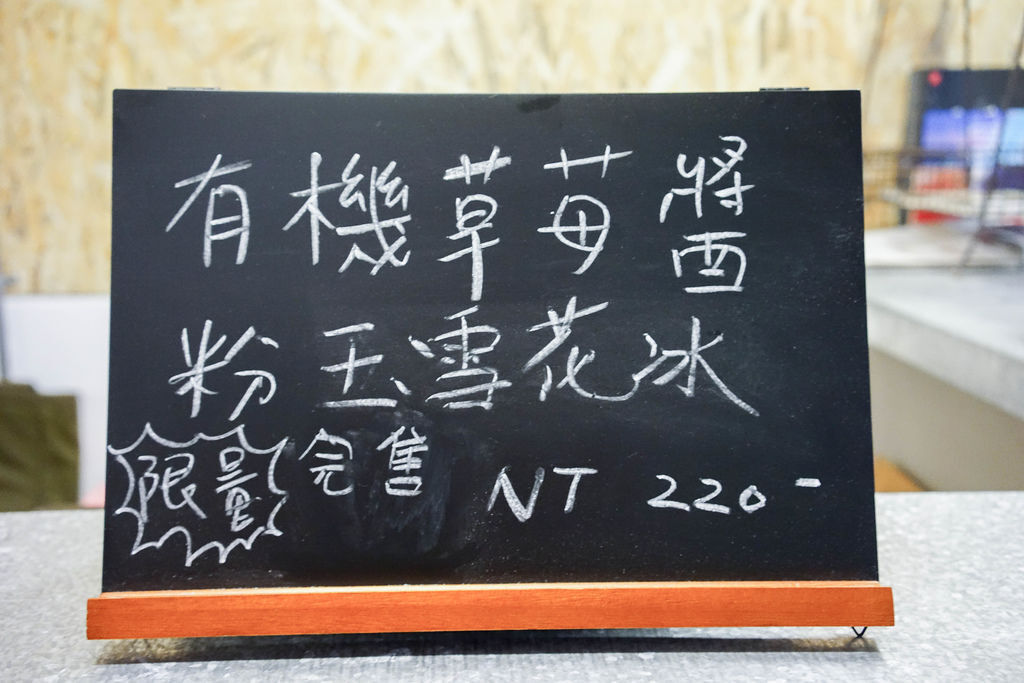 有機草莓醬
粉玉雪花冰
限量 完售 NT 220-